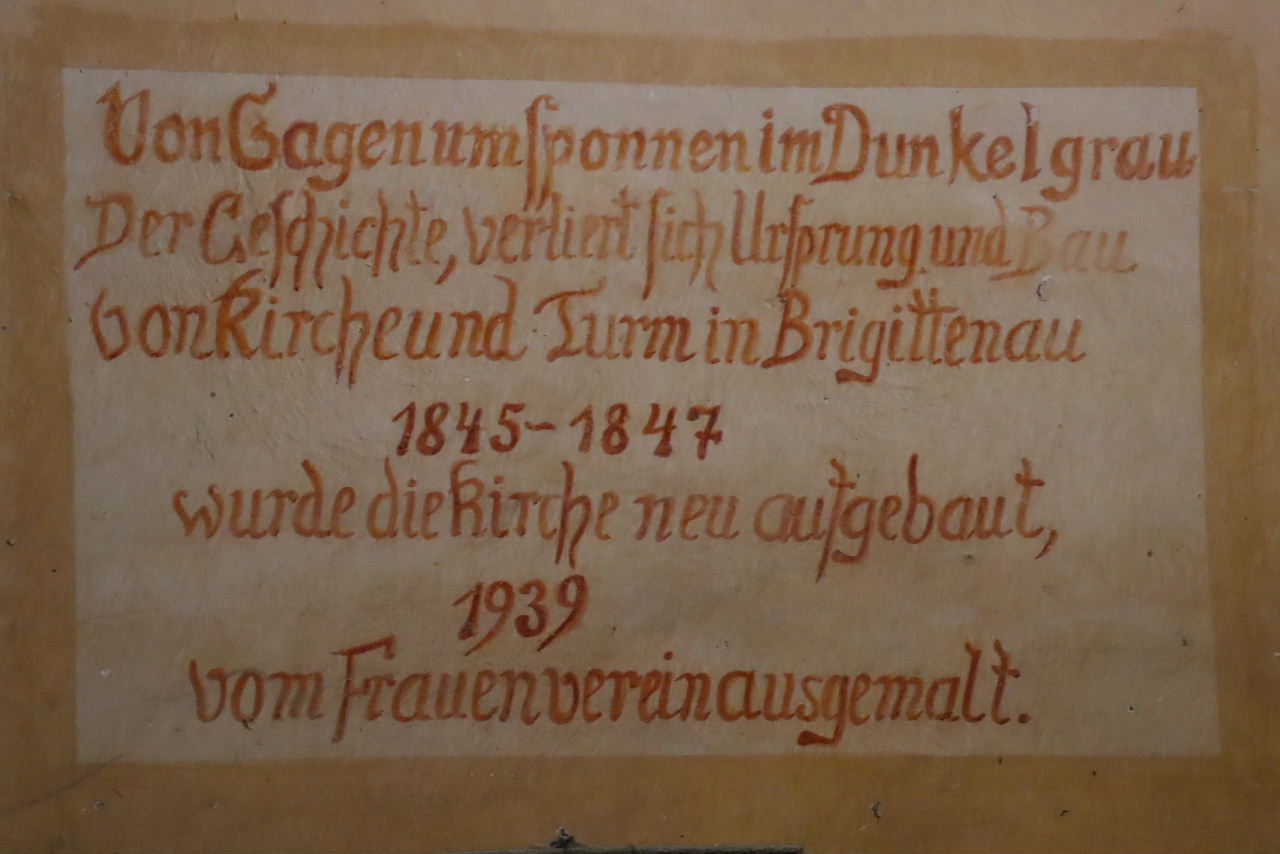 Von Sagen umsponnen im Dunkelgrau
Der Geschichte, verliert sich Ursprung und Bau
von Kirche und Turm in Brigittenau
1845-1847
wurde die Kirche neu aufgebaut,
1939
vom Frauenverein ausgemalt.